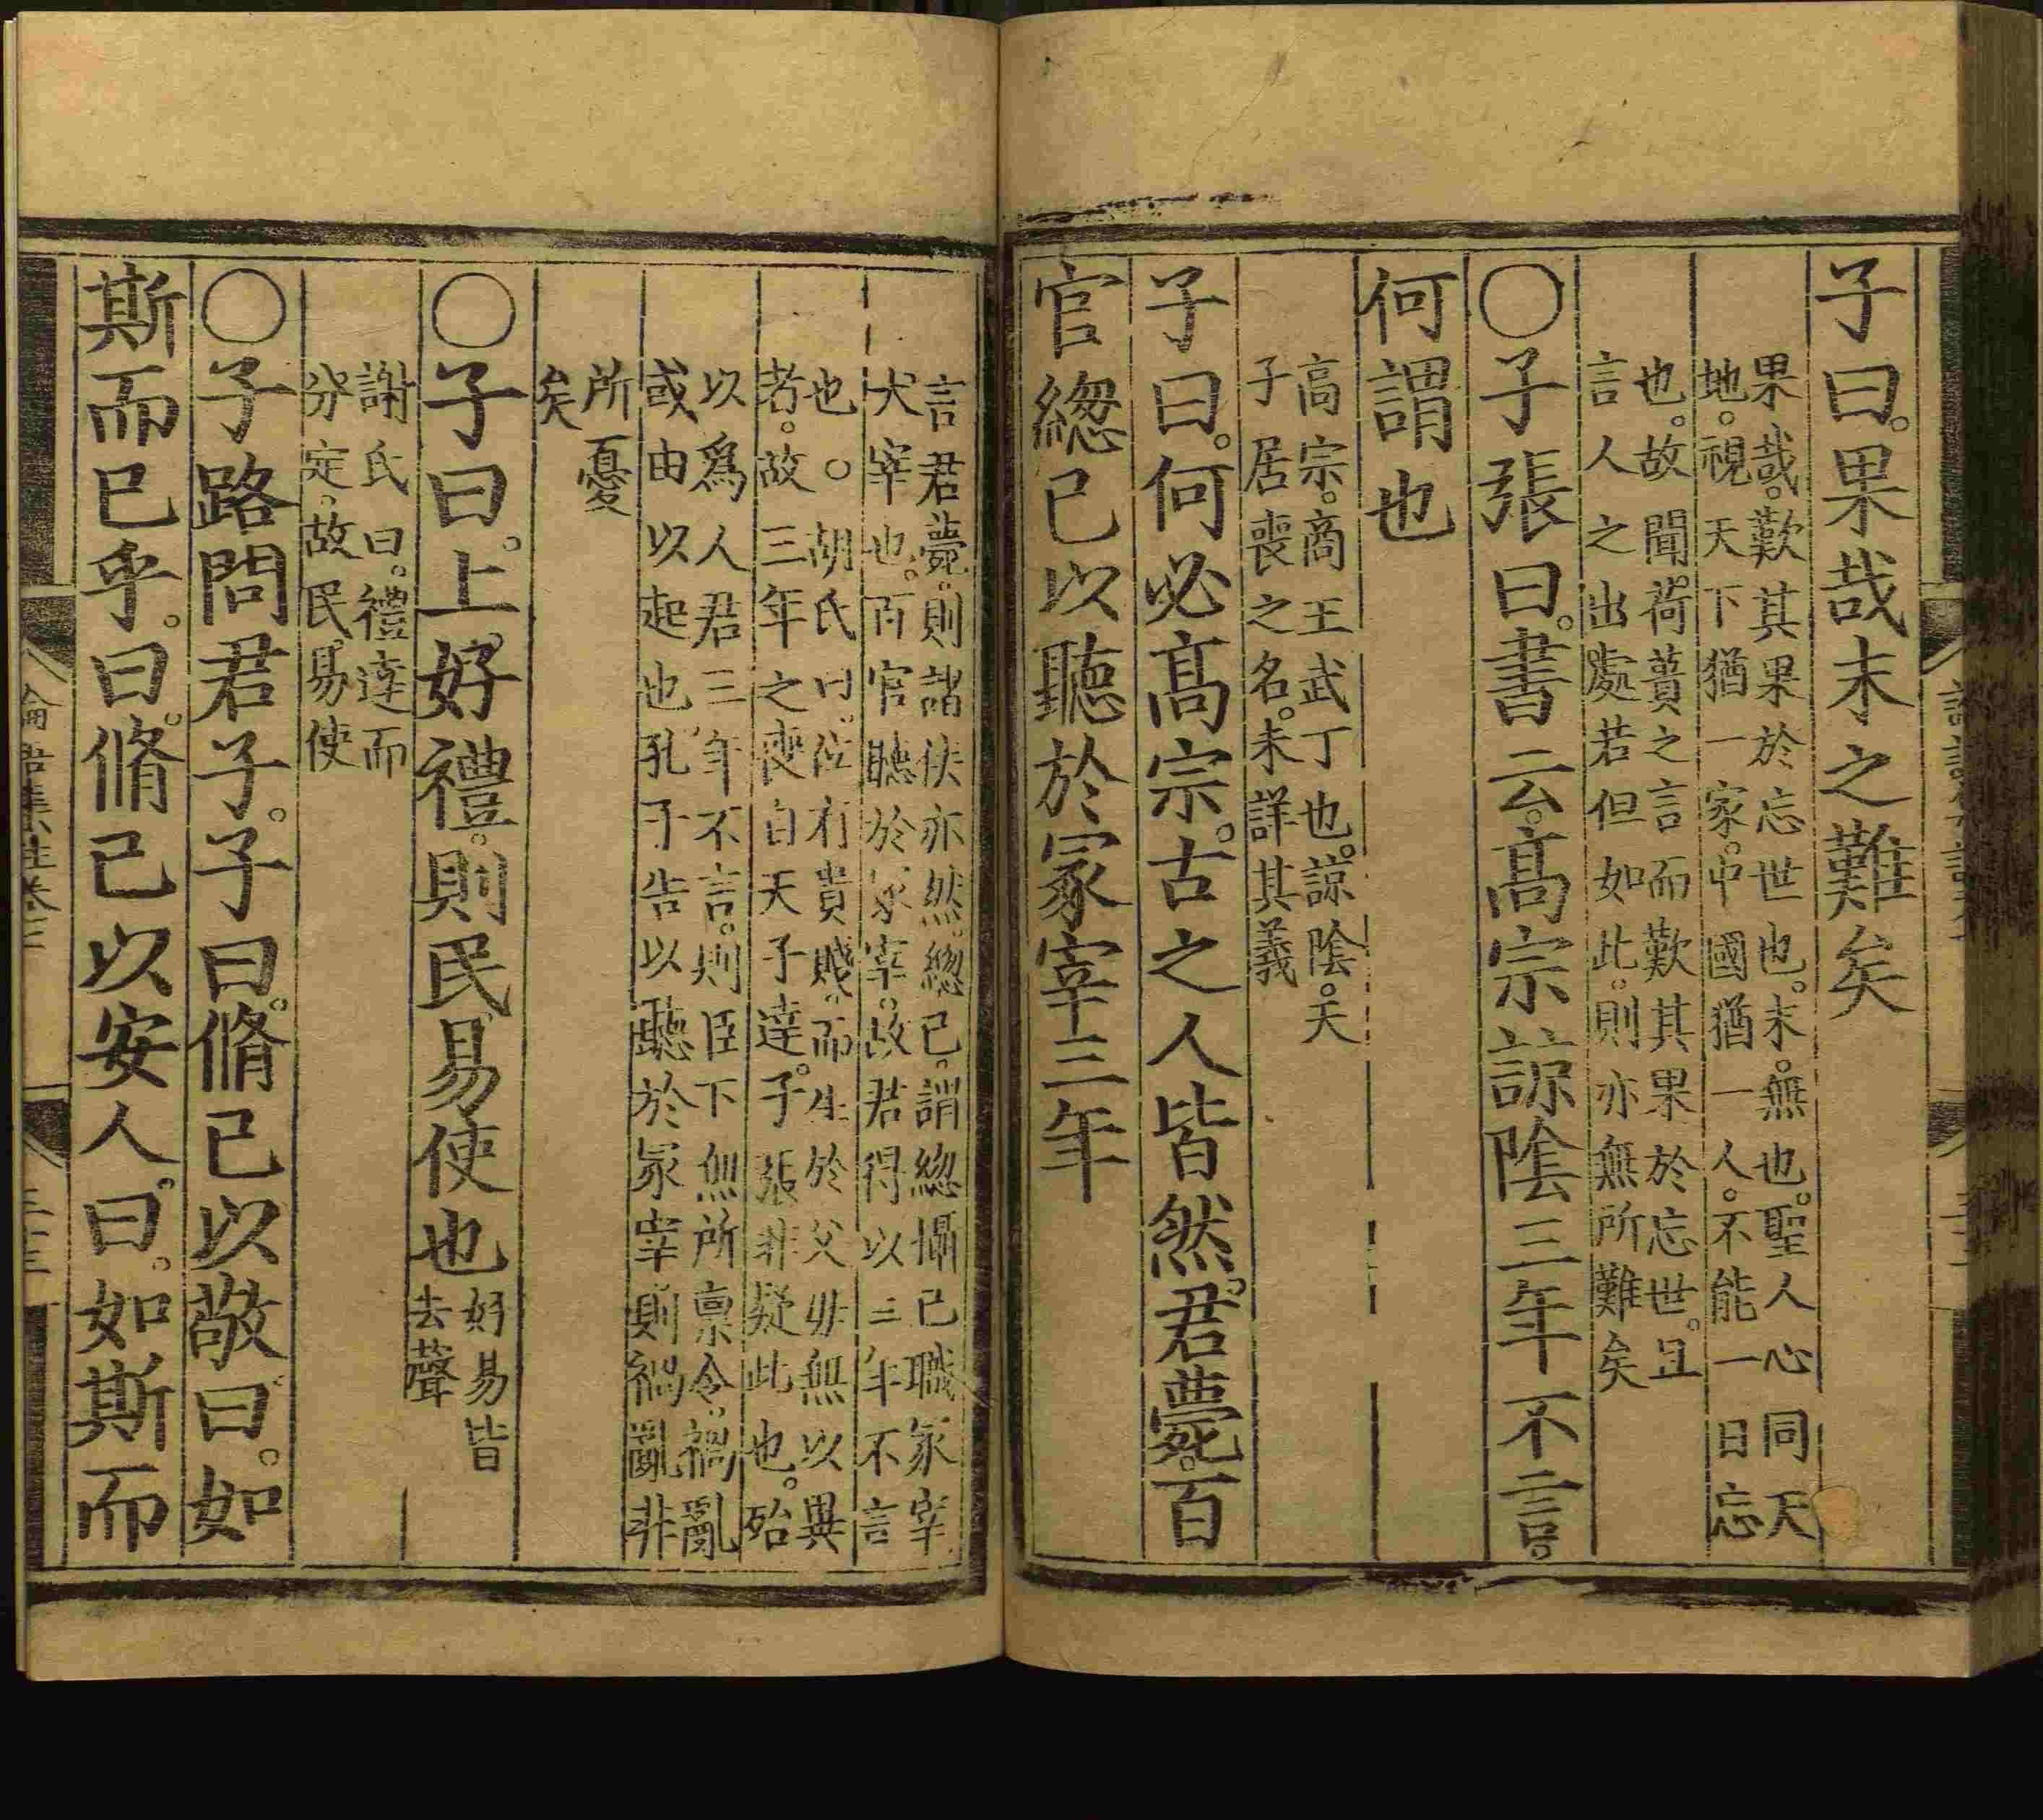 子曰。果哉末之難矣
果哉。歎其果於忘世也。末。無也。聖人心同天
地。視天下猶一家。中國猶一人。不能一日忘
也。故聞荷蕢之言而歎其果於忘世。且
言人之出處若但如此。則亦無所難矣
○子張曰。書云。高宗諒陰三年不言。
何謂也
高宗。商王武丁也。諒陰。天
子居喪之名。未詳其義
子曰。何必高宗。古之人皆然。君薨。百
官緫已以聽於冢宰三年
言君薨。則諸侯亦然。緫已。謂緫攝已職冢宰
大宰也。百官聽於冢宰。故君得以三年不言
也。○胡氏曰。位有貴賤。而生於父母無以異
者。故三年之喪自天子達。子張非疑此也。殆
以爲人君三年不言。則臣下無所禀令。禍亂
或由以起也。孔子告以聽於冢宰則禍亂非
所憂
矣
○子曰。上好禮。則民易使也
好易皆
去聲
謝氏曰。禮達而
分定。故民易使
○子路問君子。子曰。脩已以敬曰。如
斯而已乎。曰。脩已以安人。曰。如斯而
論語集註卷三